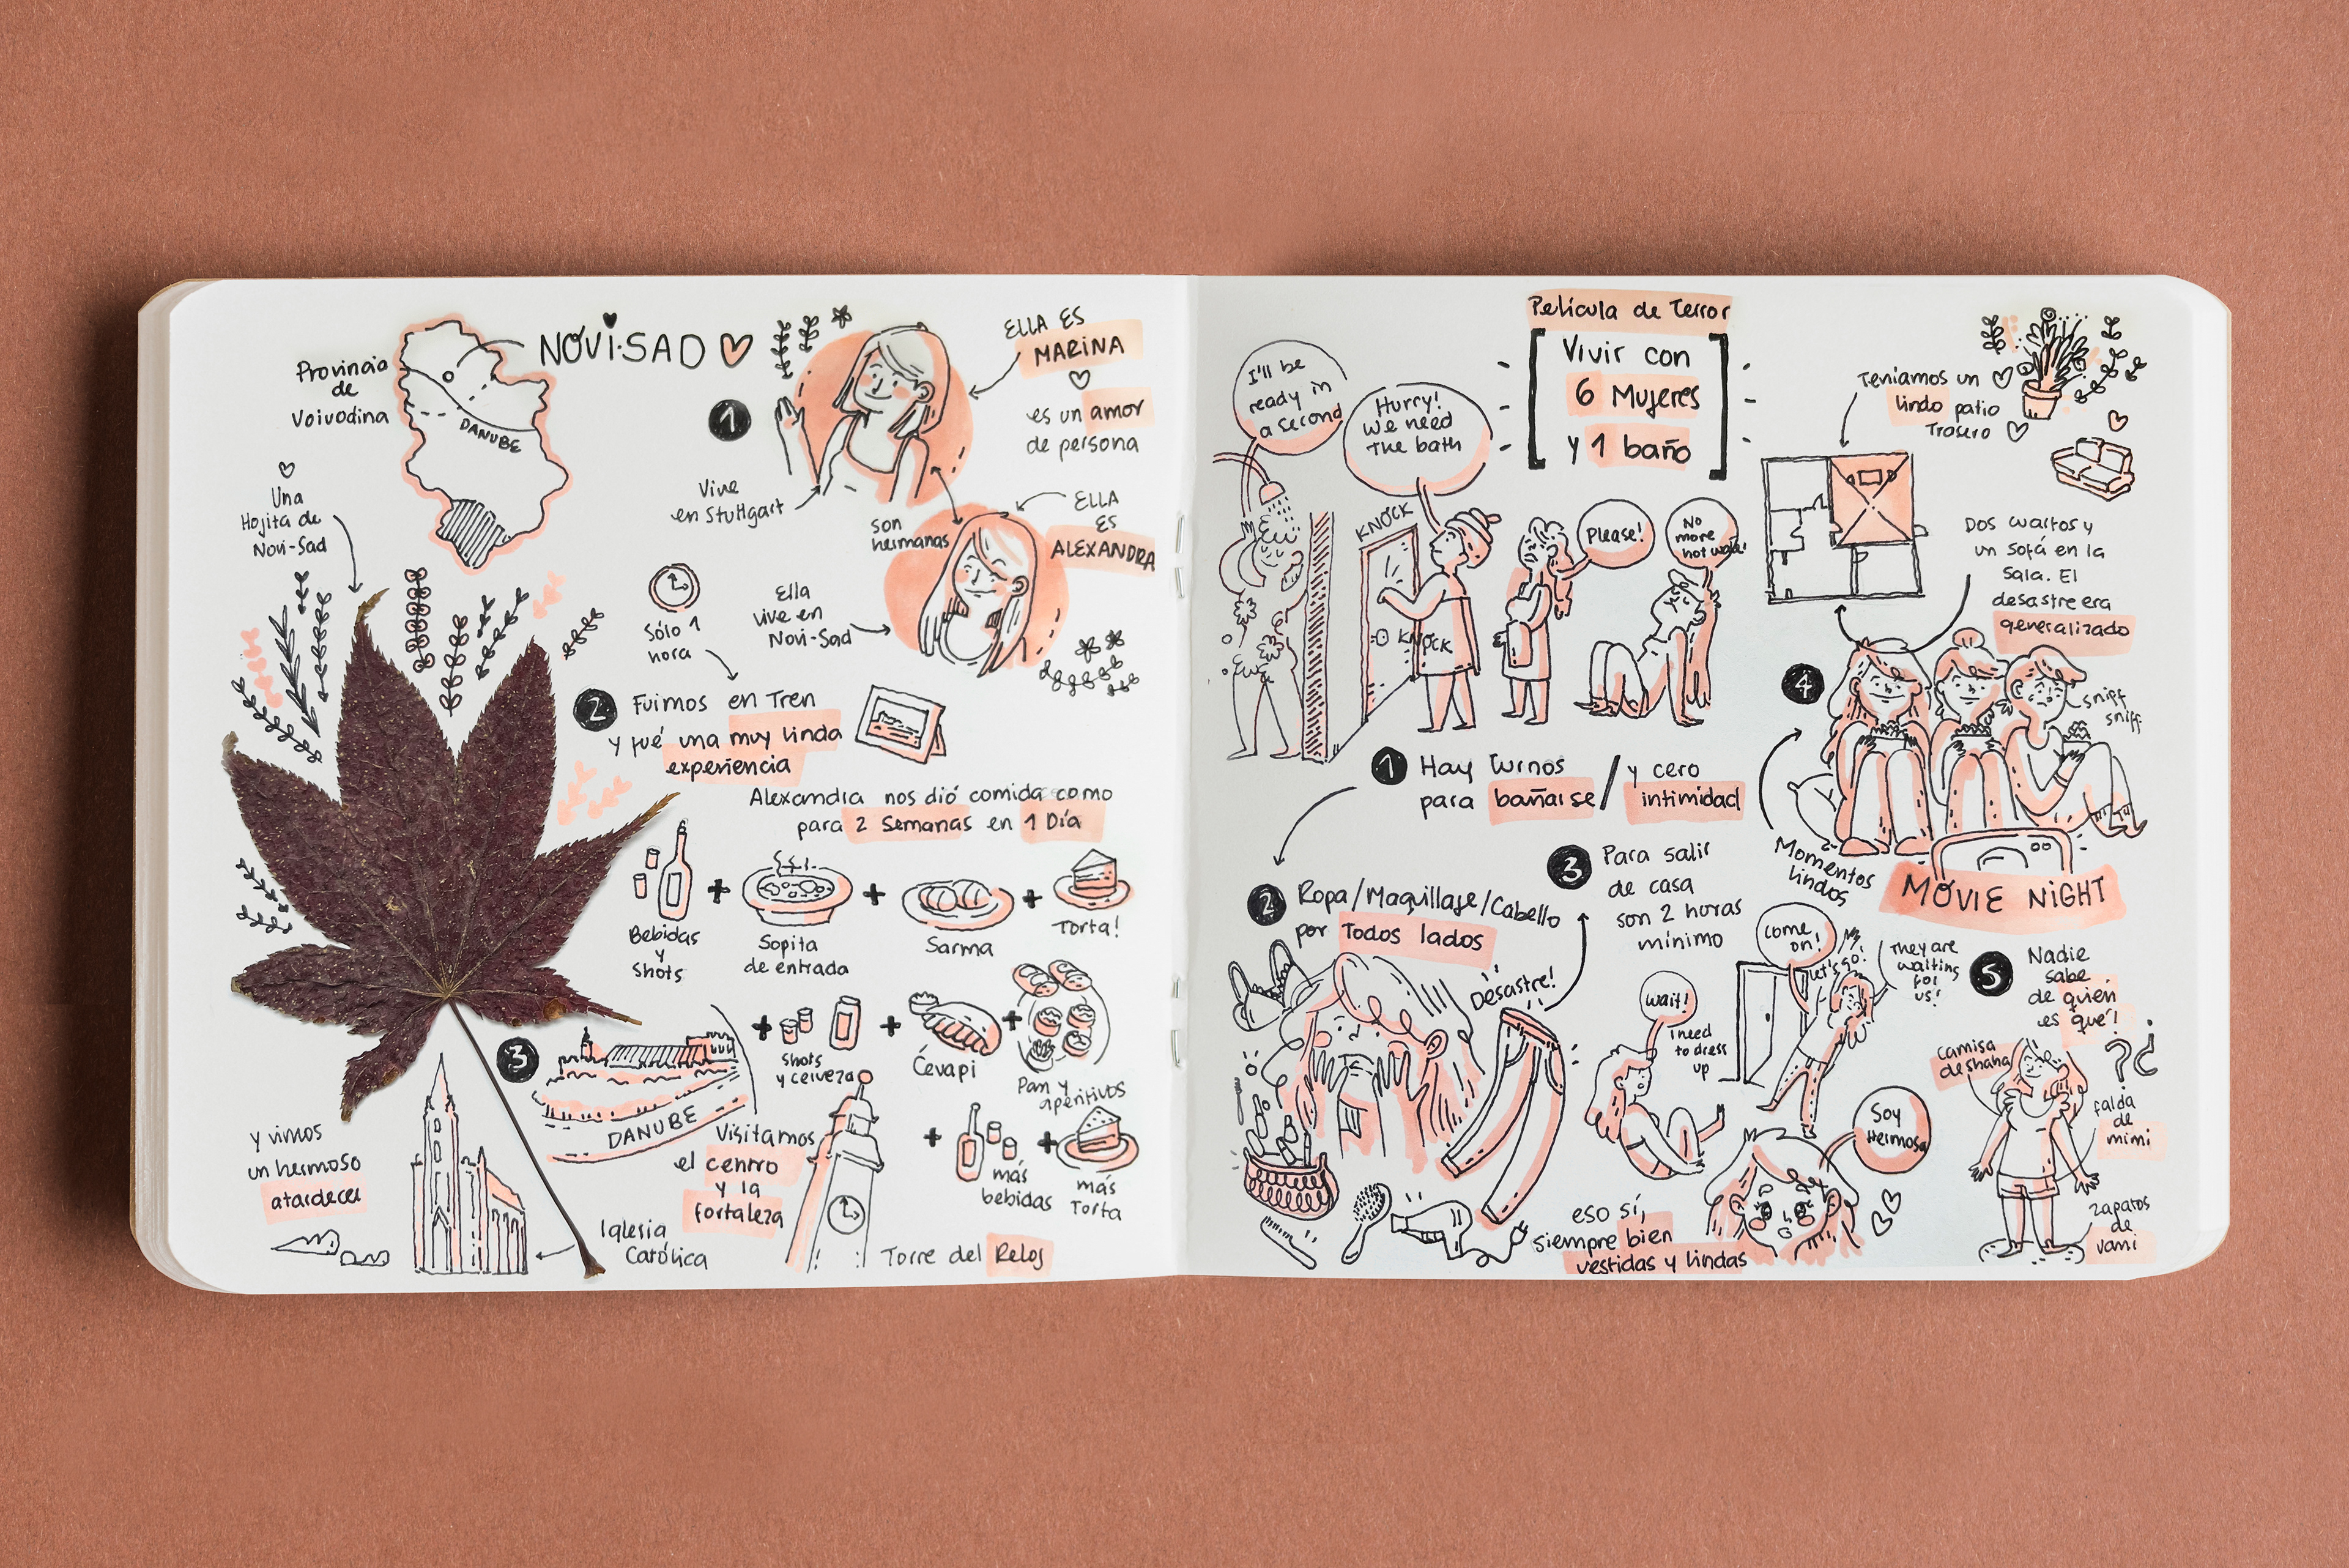 NOVI-SAD
Provincia
de
Voivodina
DANUBE
Una
Hojita de
Novi-Sad
1
ELLA ES
MARINA
es un amor
de persona
Vive
en Stuttgart
son
hermanas
ELLA
ES
ALEXANDRA
Ella
vive en
Novi-Sad
Sólo 1
hora
2 Fuimos en Tren
y fué una muy linda
experiencia
Alexandra nos dió comida como
para 2 Semanas en 1 Día
Bebidas
y
shots
+
Sopita
de entrada
+
Sarma
+
Torta!
+
shots
y cerveza
+
Ćevapi
+
Pan y
aperitivos
+
más
bebidas
+
más
Torta
3
DANUBE
Visitamos
el centro
y la
fortaleza
y vimos
un hermoso
atardecer
Iglesia
Católica
Torre del Reloj
Película de Terror
Vivir con
6 Mujeres
y 1 baño
I'll be
ready in
a second
Hurry!
We need
the bath
KNOCK
KNOCK
Please!
No
more
hot water!
1 Hay turnos
para bañarse / y cero
intimidad
2 Ropa/Maquillaje/Cabello
por Todos lados
Desastre!
3 Para salir
de casa
son 2 horas
mínimo
wait!
I need
to dress
up
come
on!
Let's go!
They are
waiting
for
us!
Soy
Hermosa
eso sí,
siempre bien
vestidas y lindas
Teníamos un
lindo patio
Trasero
Dos cuartos y
un sofá en la
sala. El
desastre era
generalizado
4
sniff
sniff
Momentos
lindos
MOVIE NIGHT
5 Nadie
sabe
de quién
es qué!
?¿
camisa
de shana
falda
de
mimi
zapatos
de
vami